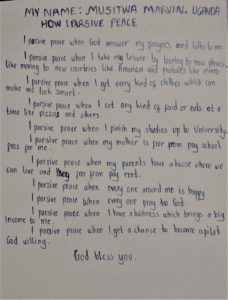 MY NAME: MUSITWA MARVIN. UGANDA
HOW I PARSIVE PEACE
I parsive peace when God answer my prayers and talks to me.
I parsive peace when I take my leisure by touring to new places
like moving to new countries like America and probably like rivers
I parsive peace when I get every kind of clothes which can
make me look smart.
I parsive peace when I eat any kind of food or eats at a
time like pizzas and others.
I parsive peace when I finish my studies up to University.
I parsive peace when my mother is free from pay school
fees for me.
I parsive peace when my parents have a house where we
can live and they free from pay rent.
I parsive peace when every one around me is happy
I parsive peace when every one pray to God.
I parsive peace when I have a business which brings a big
income to me.
I parsive peace when I get a chance to became a pilot
God willing.
God bless you.